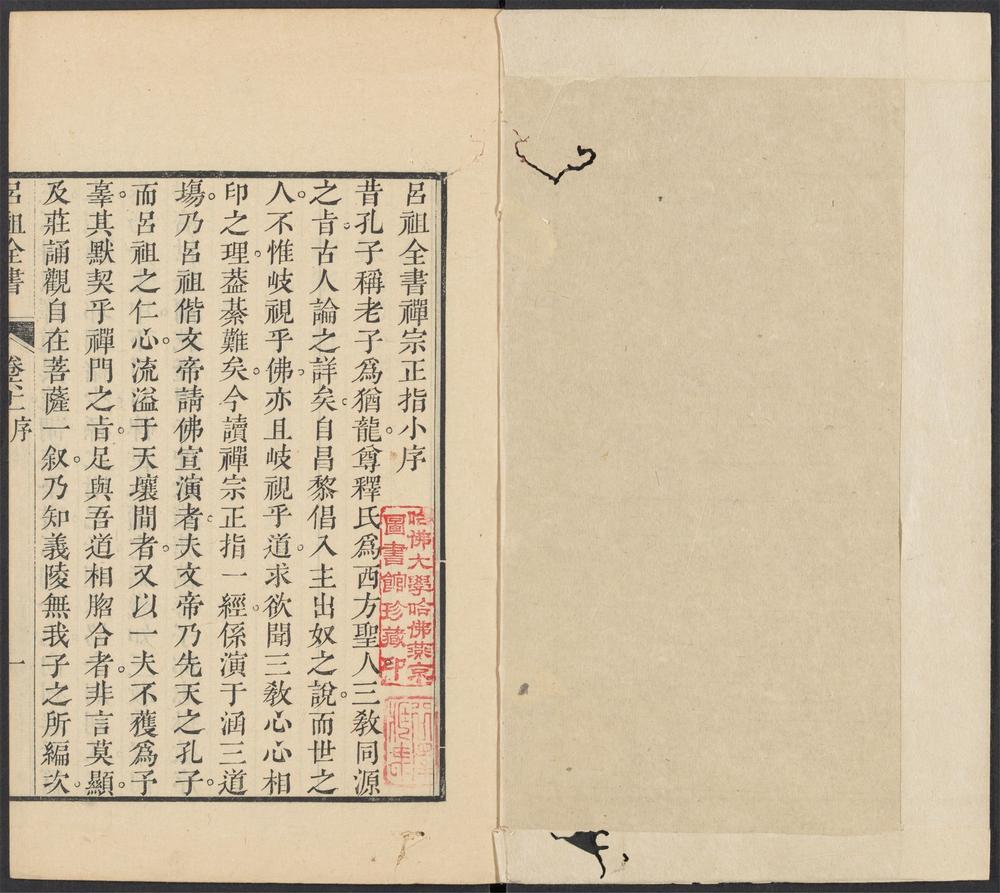 呂祖全書禪宗正指小序
昔孔子稱老子爲猶龍。尊釋氏爲西方聖人。三敎同源
之旨。古人論之詳矣。自昌黎倡入主出奴之說。而世之
人。不惟岐視乎佛。亦且岐視乎道。求欲聞三敎心心相
印之理。葢綦難矣。今讀禪宗正指一經。係演于涵三道
塲。乃呂祖偕文帝請佛宣演者。夫文帝乃先天之孔子。
而呂祖之仁心。流溢于天壤間者。又以一夫不獲爲予
辜。其默契乎禪門之旨。足與吾道相脗合者。非言莫顯。
及莊誦觀自在菩薩一叙。乃知義陵無我子之所編次。
呂祖全書
序
一
哈佛大學哈佛燕京
圖書館珍藏印